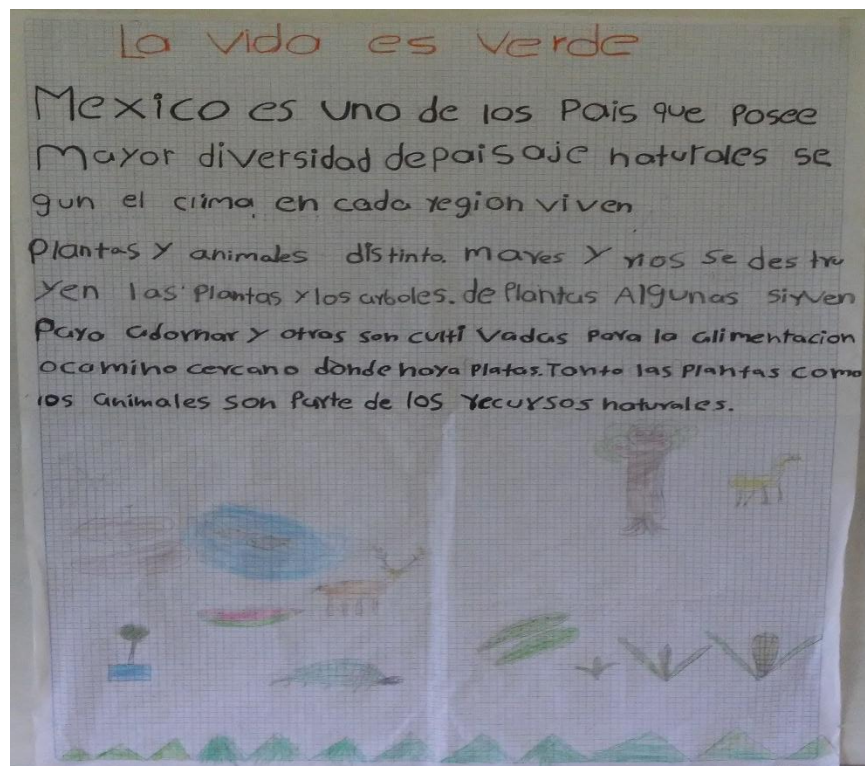 La vida es verde
Mexico es uno de los Pais que Posee
Mayor diversidad depaisaje naturales se
gun el clima en cada region viven
Plantas y animales distinto. mares y rios se destru
yen las Plantas y los arboles. de Plantas Algunas sirven
Para adornar y otras son culti vadas Para la alimentacion
ocamino cercano donde haya Platas. Tanto las Plantas como
los animales son Parte de los recursos naturales.